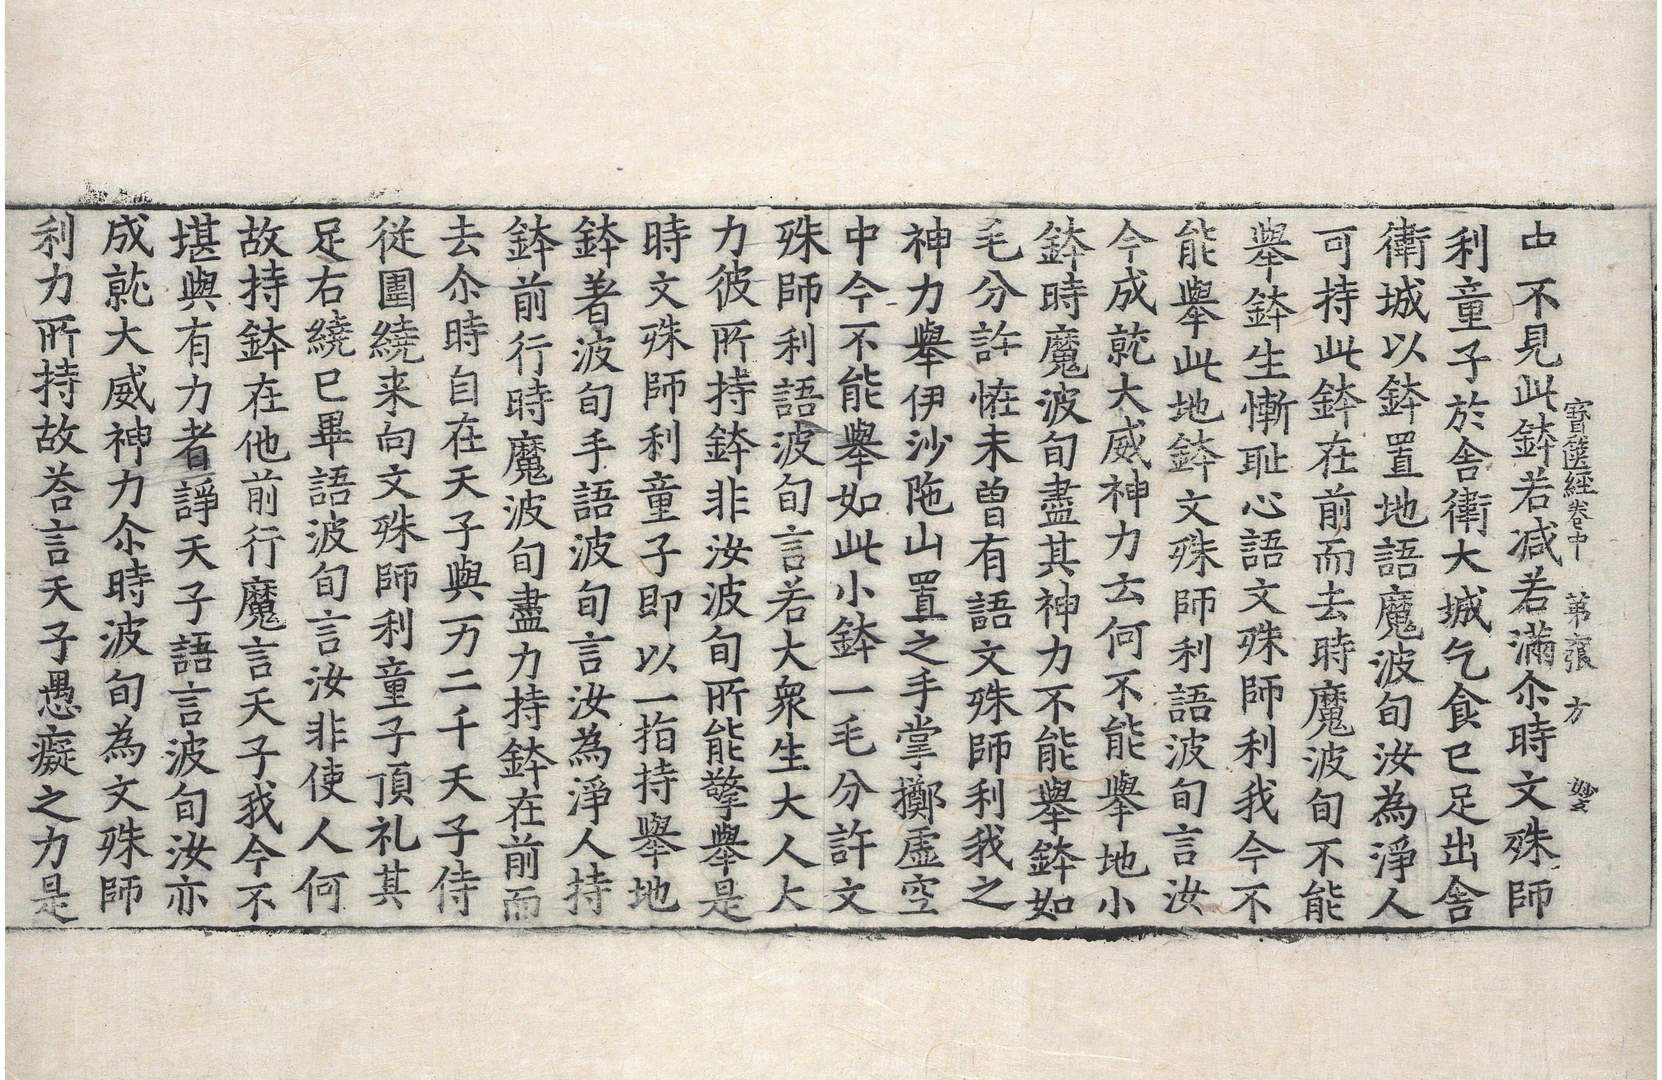 寳篋經卷中　第　張　方　妙
中不見此鉢若减若滿尒時文殊師
利童子於舍衛大城乞食已足出舍
衛城以鉢置地語魔波旬汝為淨人
可持此鉢在前而去時魔波旬不能
舉鉢生慚耻心語文殊師利我今不
能舉此地鉢文殊師利語波旬言汝
今成就大威神力云何不能舉地小
鉢時魔波旬盡其神力不能舉鉢如
毛分許恠未曾有語文殊師利我之
神力舉伊沙陁山置之手掌擲虛空
中今不能舉如此小鉢一毛分許文
殊師利語波旬言若大衆生大人大
力彼所持鉢非汝波旬所能擎舉是
時文殊師利童子即以一指持舉地
鉢著波旬手語波旬言汝為淨人持
鉢前行時魔波旬盡力持鉢在前而
去尒時自在天子與万二千天子侍
從圍繞来向文殊師利童子頂礼其
足右繞已畢語波旬言汝非使人何
故持鉢在他前行魔言天子我今不
堪與有力者諍天子語言波旬汝亦
成就大威神力尒時波旬為文殊師
利力所持故荅言天子愚癡之力是